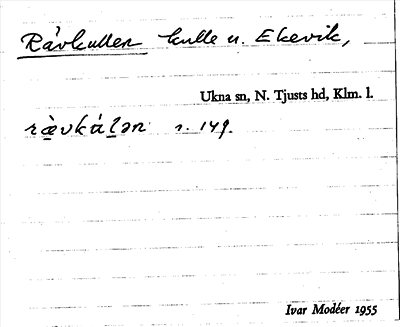 Rävkullen kulle u. Ekevik,
Ukna sn, N. Tjusts hd, Klm. l.
rævkálən s. 149.
Ivar Modéer 1955